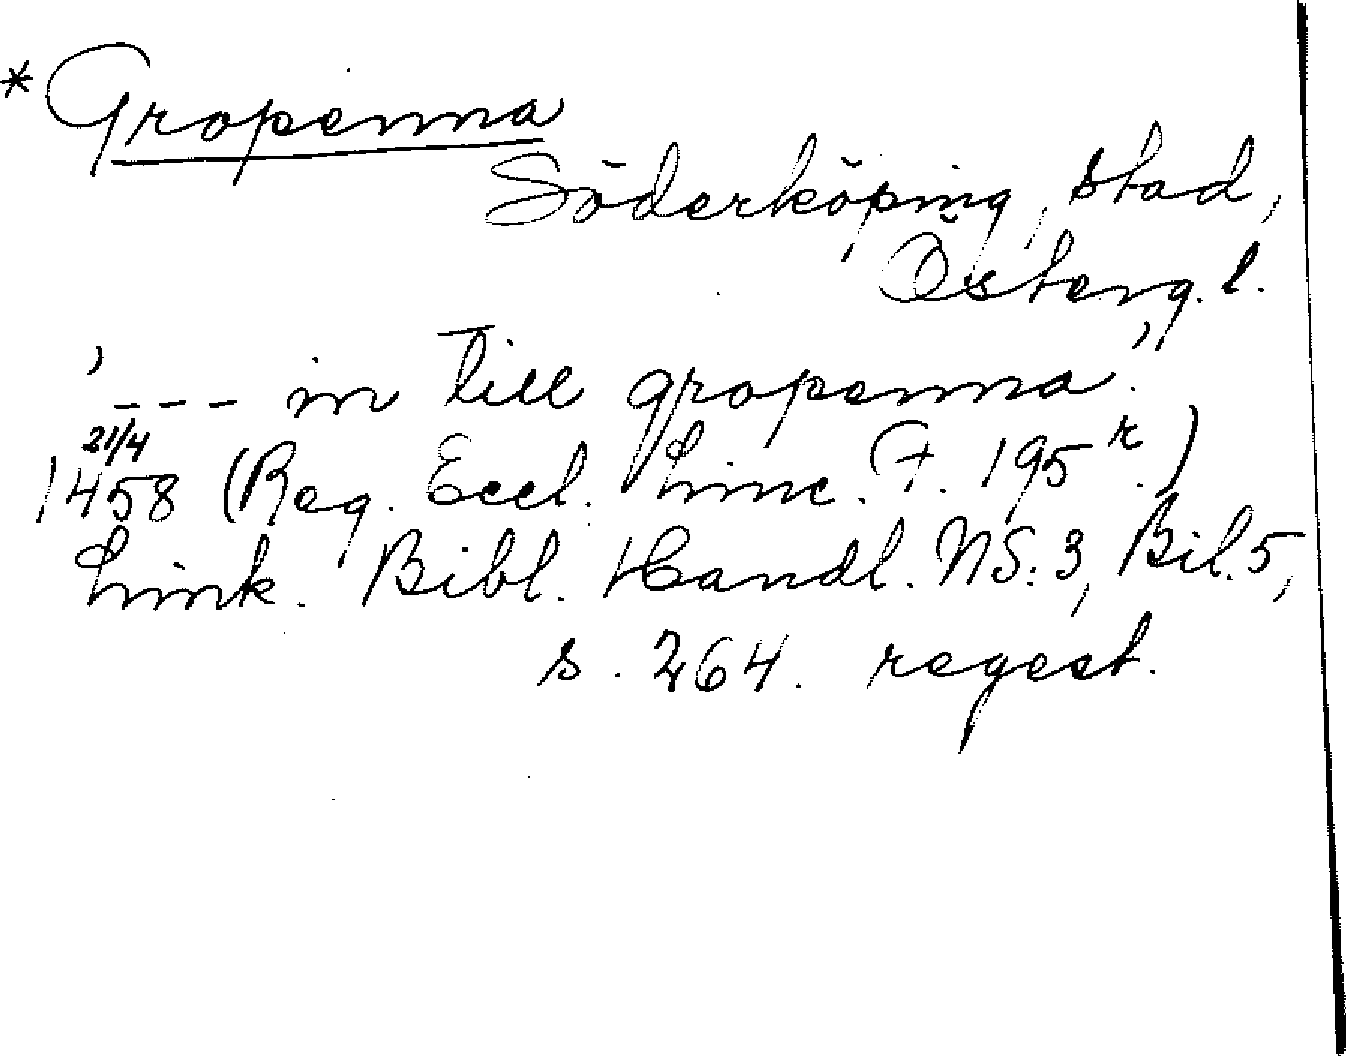 *Gropenna
Söderköping, stad,
Österg. l.
’--- in till gropenna’.
21/4
1458 (Reg. Eccl. Linc. F. 195 r.)
Link. Bibl. Handl. NS: 3, Bil. 5,
s. 264. regest.